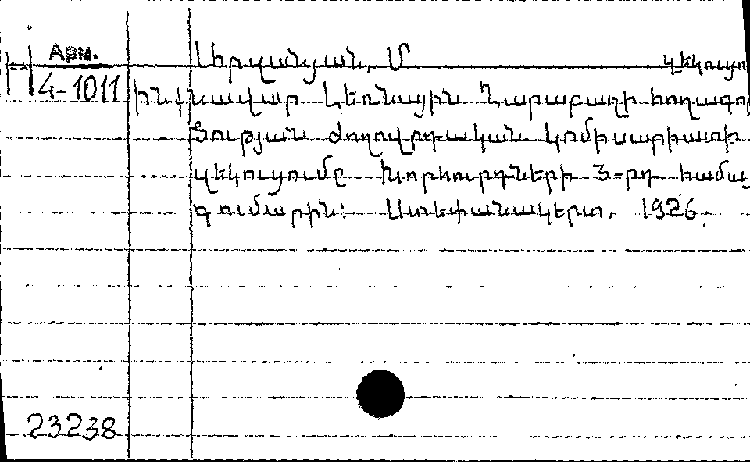 Арм.
4-1011
Սիրվանյան, Մ
զեկուցո
Ինքնավար Լեռնային Ղարաբաղի հողագոր
ծության ժողովրդական կոմիսարիատի
զեկուցումը Խորհուրդների 3-րդ համա
գումարին: Ստեփանակերտ, 1926.
23238